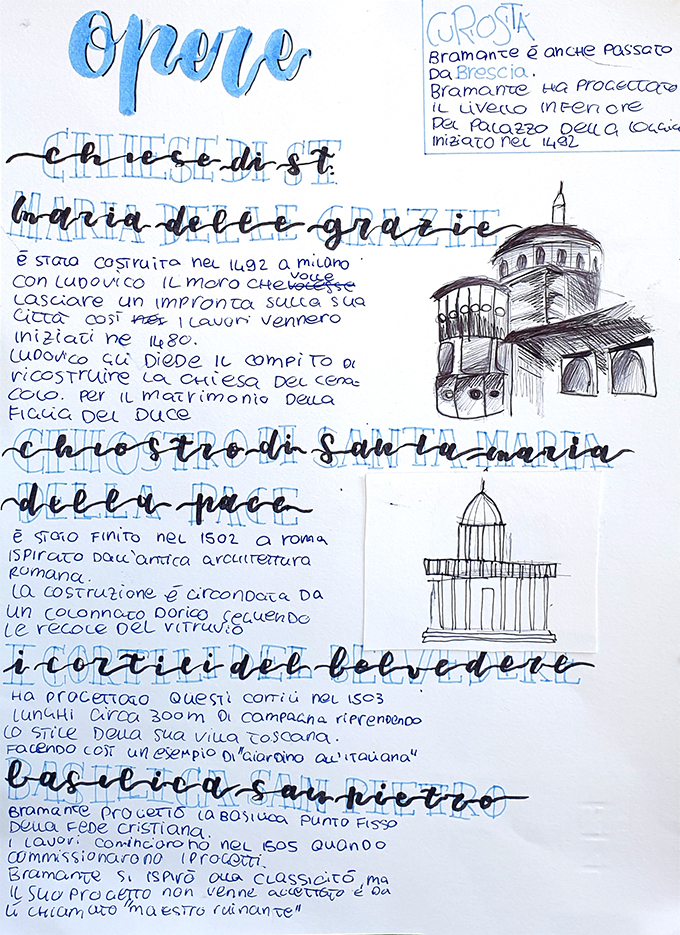 opere
CURIOSITÀ
Bramante è anche passato
da Brescia.
Bramante ha progettato
il livello inferiore
del Palazzo della Loggia
iniziato nel 1492
chiese di st.
maria delle grazie
CHIESE DI ST
MARIA DELLE GRAZIE
È stato costruita nel 1492 a Milano
con Ludovico il Moro che volle
lasciare un impronta sulla sua
città così i lavori vennero
iniziati ne 1480.
Ludovico gli diede il compito di
ricostruire la chiesa del cena-
colo. Per il matrimonio della
figlia del duce
chiostro di santa maria
della pace
CHIOSTRO DI SANTA MARIA
DELLA PACE
È stato finito nel 1502 a Roma
ispirato dall'antica architettura
romana.
La costruzione è circondata da
un colonnato dorico seguendo
le regole del Vitruvio
i cortili del belvedere
I CORTILI DEL BELVEDERE
Ha progettato questi cortili nel 1503
lunghi circa 300m di campagna riprendendo
lo stile della sua villa toscana.
Facendo così un esempio di "giardino all'italiana"
basilica san pietro
BASILICA SAN PIETRO
Bramante progettò la basilica punto fisso
della fede cristiana.
I lavori cominciarono nel 1505 quando
commissionarono i progetti.
Bramante si ispirò alla classicità, ma
il suo progetto non venne accettato e da
lì chiamato "maestro ruinante"